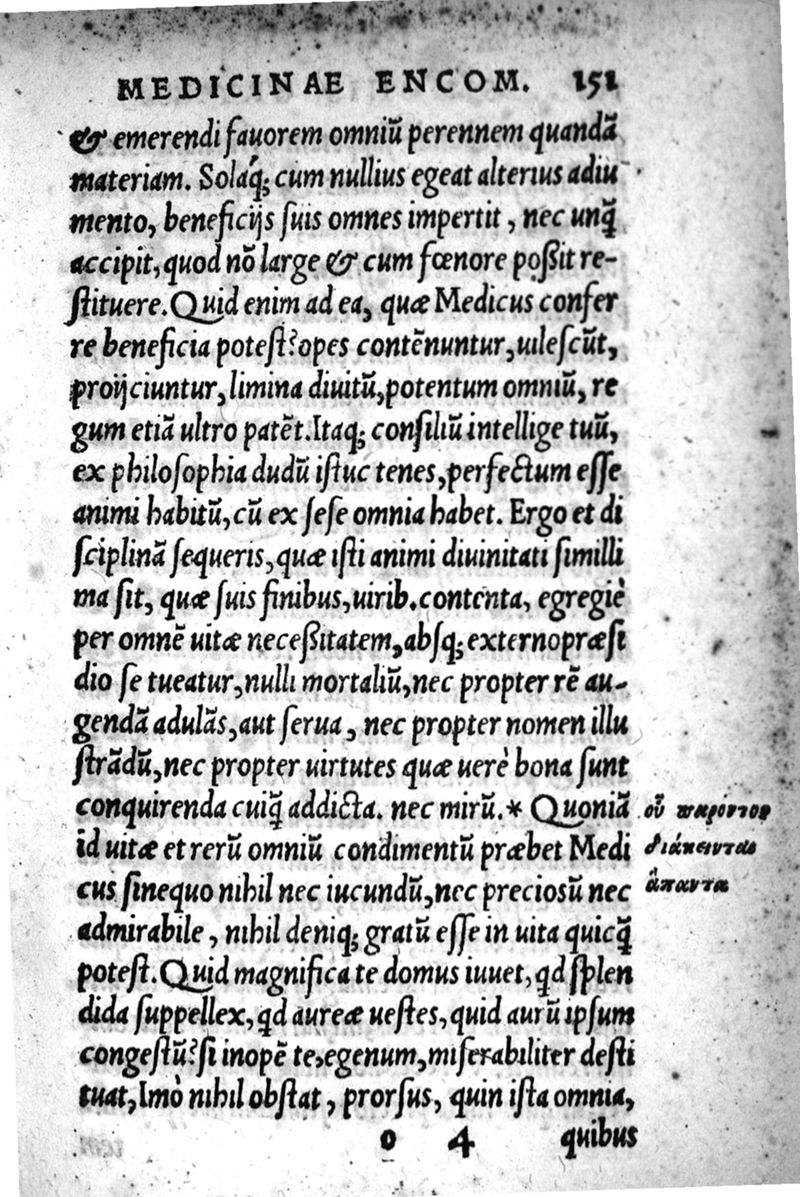 MEDICINAE ENCOM. 151
& emerendi fauorem omniũ perennem quandã
materiam. Solaq́; cum nullius egeat alterius adiu
mento, beneficijs ſuis omnes impertit, nec unq̃
accipit, quod nõ large & cum fœnore poßit re-
ſtituere. Quid enim ad ea, quæ Medicus confer
re beneficia poteſt? opes contẽnuntur, uileſcũt,
proijciuntur, limina diuitũ, potentum omniũ, re
gum etiã ultro patẽt. Itaq; conſiliũ intellige tuũ,
ex philoſophia dudũ iſtuc tenes, perfectum eſſe
animi habitũ, cũ ex ſeſe omnia habet. Ergo et di
ſciplinã ſequeris, quæ iſti animi diuinitati ſimilli
ma ſit, quæ ſuis finibus, uirib. contenta, egregiè
per omnẽ uitæ neceßitatem, abſq; externo præſi
dio ſe tueatur, nulli mortaliũ, nec propter rẽ au-
gendã adulãs, aut ſerua, nec propter nomen illu
ſtrãdũ, nec propter uirtutes quæ uerè bona ſunt
conquirenda cuiq̃ addicta. nec mirũ.* Quoniã
id uitæ et rerũ omniũ condimentũ præbet Medi
cus ſine quo nihil nec iucundũ, nec precioſũ nec
admirabile, nihil deniq; gratũ eſſe in uita quicq̃
poteſt. Quid magnifica te domus iuuet, qd ſplen
dida ſuppellex, qd aureæ ueſtes, quid aurũ ipſum
congeſtũ? ſi inopẽ te, egenum, miſerabiliter deſti
tuat, Imò nihil obſtat, prorſus, quin iſta omnia,
o 4 quibus
οὗ παρόντος
διάκεινται
ἅπαντα